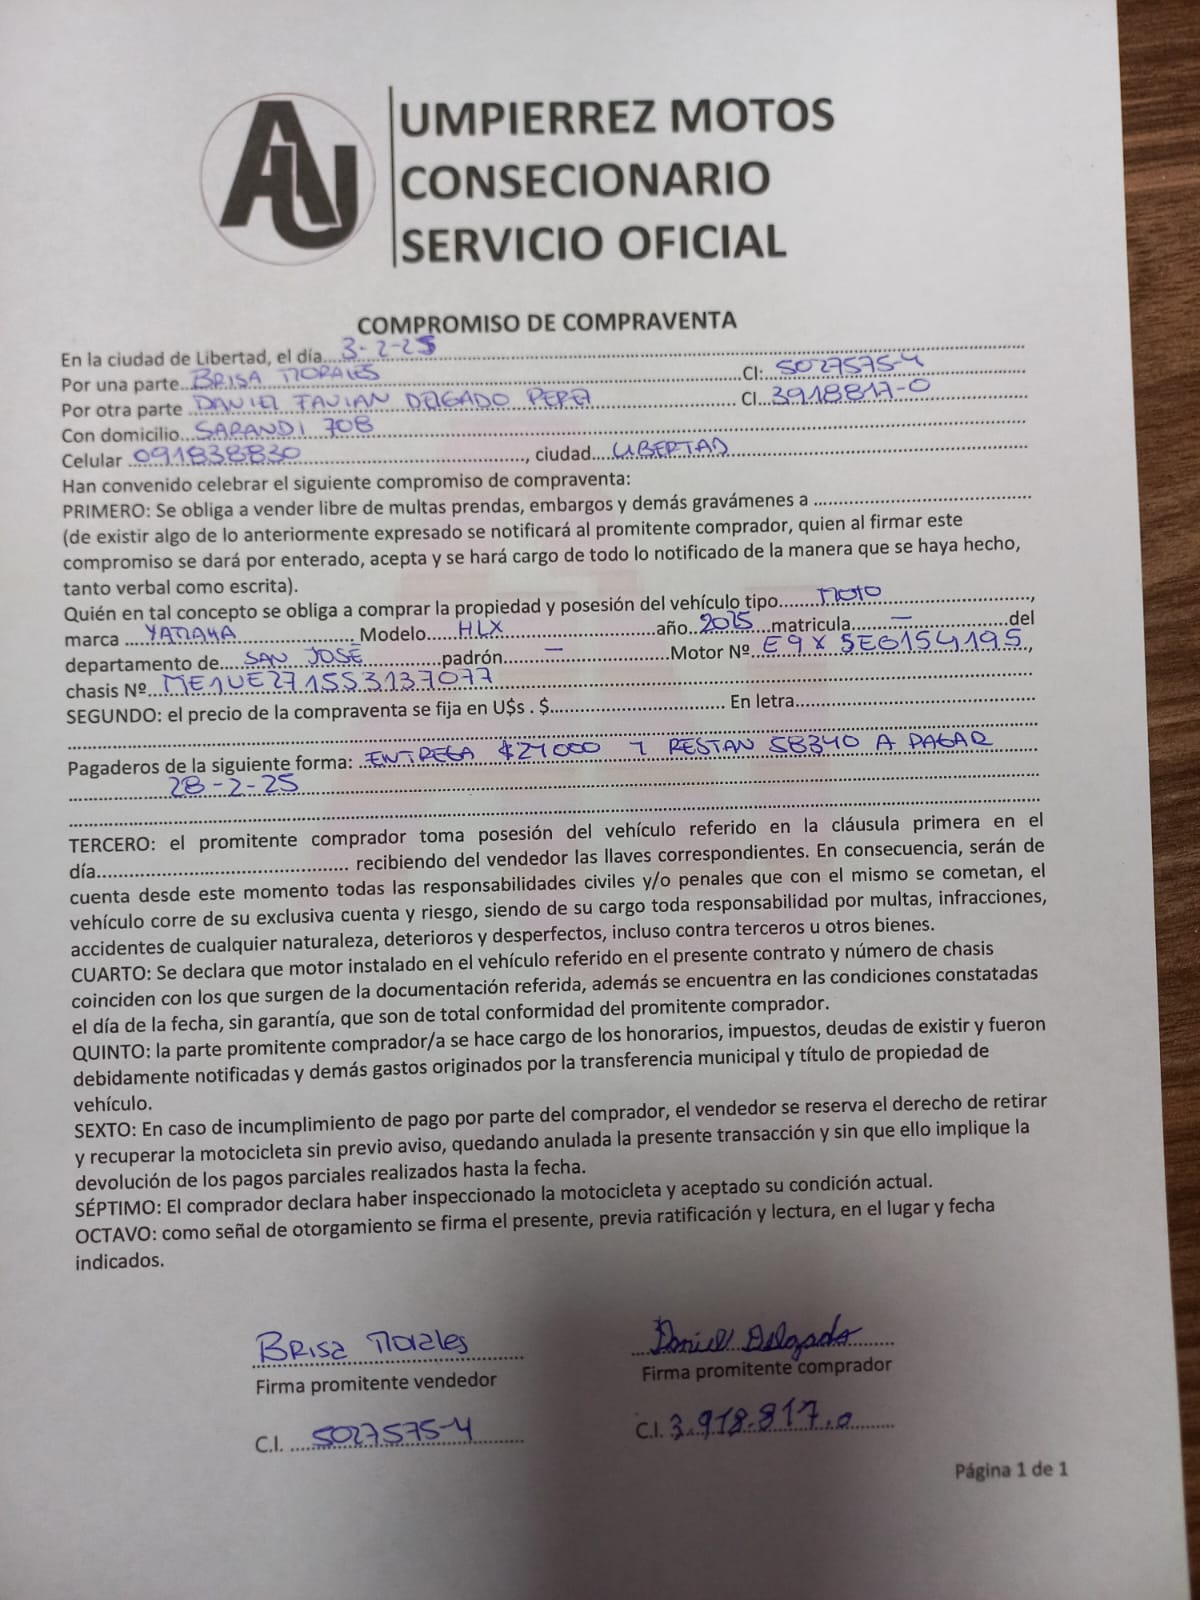 AU
UMPIERREZ MOTOS
CONSECIONARIO
SERVICIO OFICIAL
COMPROMISO DE COMPRAVENTA
En la ciudad de Libertad, el día...3-2-25
Por una parte..BRISA MORALES CI: 5027575-4
Por otra parte ..DANIEL FAVIAN DELGADO PEREZ CI...3918817-0
Con domicilio...SARANDI 708
Celular 091838830, ciudad....LIBERTAD
Han convenido celebrar el siguiente compromiso de compraventa:
PRIMERO: Se obliga a vender libre de multas prendas, embargos y demás gravámenes a ........................................
(de existir algo de lo anteriormente expresado se notificará al promitente comprador, quien al firmar este
compromiso se dará por enterado, acepta y se hará cargo de todo lo notificado de la manera que se haya hecho,
tanto verbal como escrita).
Quién en tal concepto se obliga a comprar la propiedad y posesión del vehículo tipo........MOTO,
marca ....YAMAHA Modelo.....HLX año..2025 matricula......—......del
departamento de....SAN JOSÉ padrón.......—......Motor Nº..E9X5E6154195,
chasis Nº..ME1UE2715S3137077
SEGUNDO: el precio de la compraventa se fija en U$s . $................................ En letra........................................
Pagaderos de la siguiente forma: ..ENTREGA $24000 Y RESTAN 58340 A PAGAR
28-2-25
TERCERO: el promitente comprador toma posesión del vehículo referido en la cláusula primera en el
día............................................. recibiendo del vendedor las llaves correspondientes. En consecuencia, serán de
cuenta desde este momento todas las responsabilidades civiles y/o penales que con el mismo se cometan, el
vehículo corre de su exclusiva cuenta y riesgo, siendo de su cargo toda responsabilidad por multas, infracciones,
accidentes de cualquier naturaleza, deterioros y desperfectos, incluso contra terceros u otros bienes.
CUARTO: Se declara que motor instalado en el vehículo referido en el presente contrato y número de chasis
coinciden con los que surgen de la documentación referida, además se encuentra en las condiciones constatadas
el día de la fecha, sin garantía, que son de total conformidad del promitente comprador.
QUINTO: la parte promitente comprador/a se hace cargo de los honorarios, impuestos, deudas de existir y fueron
debidamente notificadas y demás gastos originados por la transferencia municipal y título de propiedad de
vehículo.
SEXTO: En caso de incumplimiento de pago por parte del comprador, el vendedor se reserva el derecho de retirar
y recuperar la motocicleta sin previo aviso, quedando anulada la presente transacción y sin que ello implique la
devolución de los pagos parciales realizados hasta la fecha.
SÉPTIMO: El comprador declara haber inspeccionado la motocicleta y aceptado su condición actual.
OCTAVO: como señal de otorgamiento se firma el presente, previa ratificación y lectura, en el lugar y fecha
indicados.
Brisa Morales Daniel Delgado
Firma promitente vendedor Firma promitente comprador
C.I. ....5027575-4 C.I. 3.918.817.0
Página 1 de 1